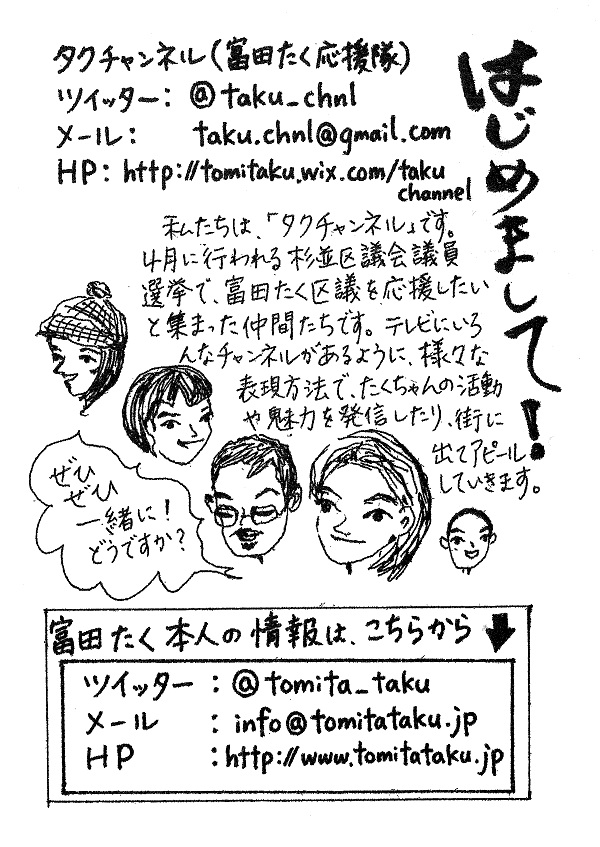 はじめまして!
タクチャンネル(富田たく応援隊)
ツイッター: @taku_chnl
メール: taku.chnl@gmail.com
HP: http://tomitaku.wix.com/taku
channel
私たちは、「タクチャンネル」です。
4月に行われる杉並区議会議員
選挙で、富田たく区議を応援したい
と集まった仲間たちです。テレビにいろ
んなチャンネルがあるように、様々な
表現方法で、たくちゃんの活動
や魅力を発信したり、街に
出てアピール
していきます。
ぜひ
ぜひ
一緒に!
どうですか?
富田たく本人の情報は、こちらから ⬇
ツイッター : @tomita_taku
メール : info@tomitataku.jp
HP : http://www.tomitataku.jp